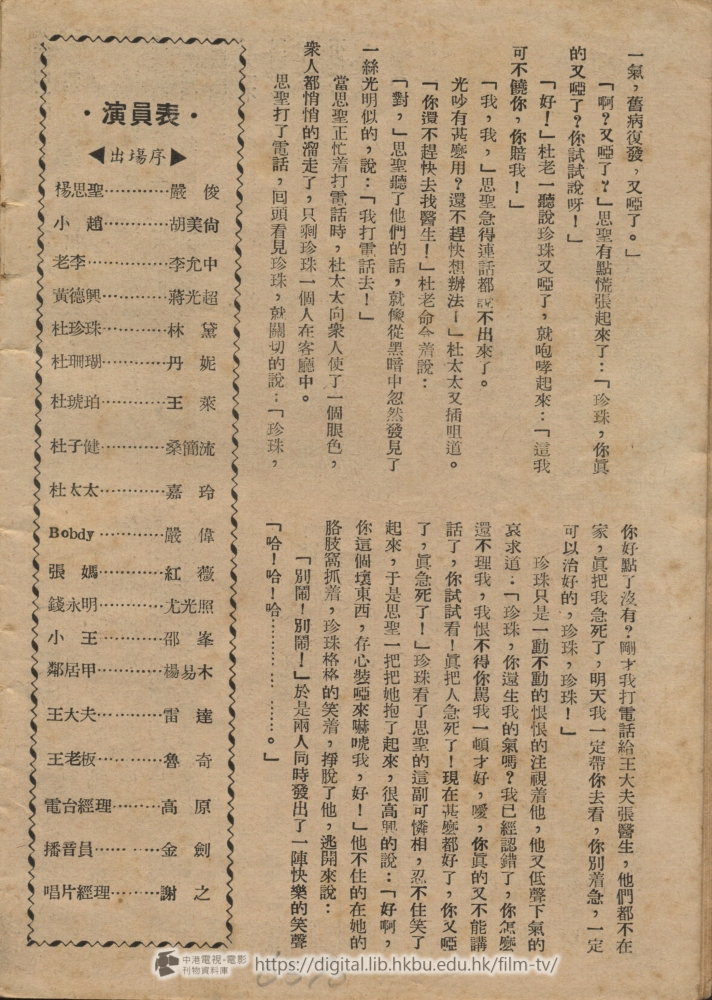 一氣，舊病復發，又啞了。」
「啊？又啞了？」思聖有點慌張起來了：「珍珠，你眞
的又啞了？你試試說呀！」
「好！」杜老一聽說珍珠又啞了，就咆哮起來：「這我
可不饒你，你賠我！」
「我，我，」思聖急得連話都說不出來了。
光吵有甚麼用？還不趕快想辦法！」杜太太又插咀道。
「你還不趕快去找醫生！」杜老命令着說：
「對，」思聖聽了他們的話，就像從黑暗中忽然發見了
一絲光明似的，說：「我打電話去！」
當思聖正忙着打電話時，杜太太向衆人使了一個眼色，
衆人都悄悄的溜走了，只剩珍珠一個人在客廳中。
思聖打了電話，囘頭看見珍珠，就關切的說：「珍珠，
你好點了沒有？剛才我打電話給王大夫張醫生，他們都不在
家，眞把我急死了，明天我一定帶你去看，你別着急，一定
可以治好的，珍珠，珍珠！」
珍珠只是一動不動的恨恨的注視着他，他又低聲下氣的
哀求道：「珍珠，你還生我的氣嗎？我已經認錯了，你怎麼
還不理我，我恨不得你罵我一頓才好，噯，你眞的又不能講
話了，你試試看！眞把人急死了！現在甚麼都好了，你又啞
了，眞急死了！」珍珠看了思聖的這副可憐相，忍不住笑了
起來，于是思聖一把把她抱了起來，很高興的說：「好啊，
你這個壞東西，存心裝啞來嚇唬我，好！」他不住的在她的
胳肢窩抓着，珍珠格格的笑着，掙脫了他，逃開來說：
「別鬧！別鬧！」於是兩人同時發出了一陣快樂的笑聲
「哈！哈！哈…………………。」
·演員表·
◀出場序▶
楊思聖…………嚴　俊
小　趙…………胡美尙
老李……………李尤中
黃德興…………蔣光超
杜珍珠…………林　黛
杜珊瑚…………丹　妮
杜琥珀…………王　萊
杜子健…………桑簡流
杜太太…………嘉　玲
Bobdy…………嚴　偉
張　媽…………紅　薇
錢永明…………尤光照
小　王…………邵　峯
鄰居甲…………楊易木
王大夫…………雷　達
王老板…………魯　奇
電台經理………高　原
播音員…………金　劍
唱片經理………謝　之
中港電視·電影
刊物資料庫
https://digital.lib.hkbu.edu.hk/film-tv/